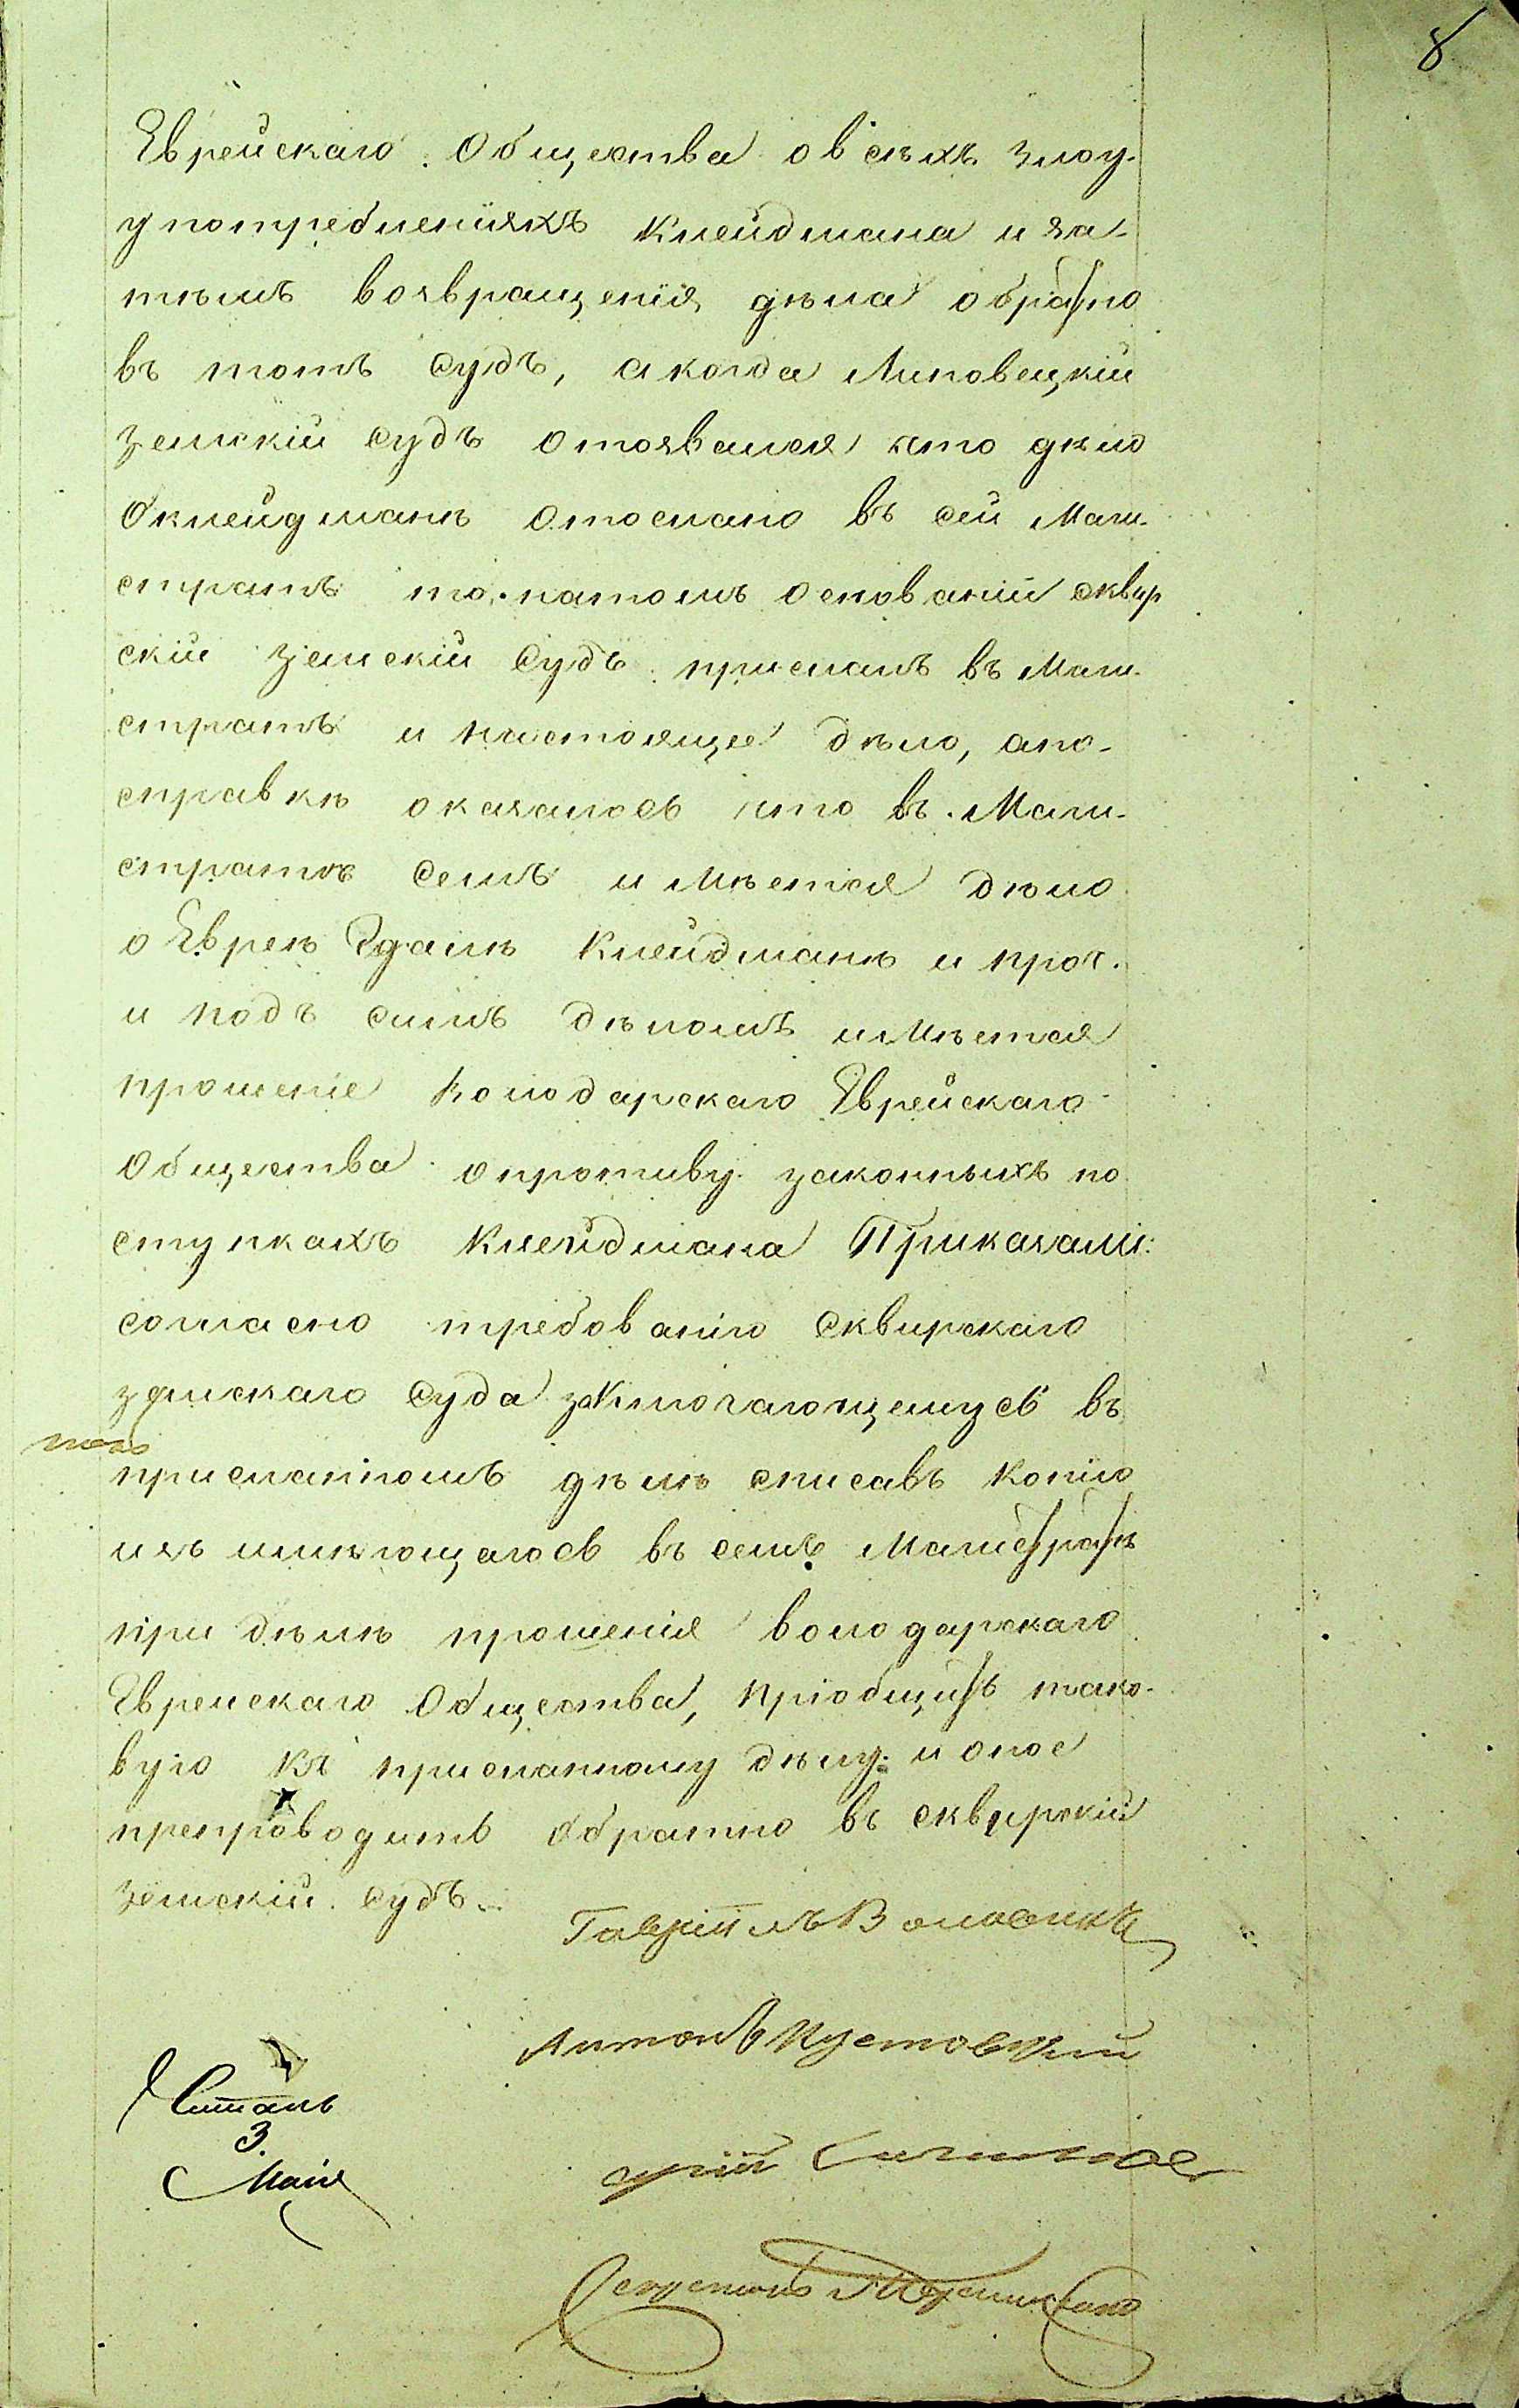 8
Еврейскаго Общества о всѣхъ злоу-
употребленіяхъ Клейдмана и за-
тѣмъ возвращенія дѣла обратно
въ тотъ Судъ, а когда Липовецкій
земскій судъ отозвался что дѣло
о Клейдманѣ отослано въ сей Маги-
стратъ то. на томъ основаніи сквир
скій земскій Судъ прислалъ въ Маги-
стратъ и настоящее дѣло, а по-
справкѣ оказалось что въ Маги-
стратѣ семъ имѣется дѣло
о Евреѣ Клейдманѣ и проч.
и подъ симъ дѣломъ имѣется
прошеніе Володарскаго Еврейскаго
Общества о противу законныхъ по
ступкахъ Клейдмана Приказали:
согласно требованію Сквирскаго
земскаго Суда заключающемусь въ
присланномъ дѣлѣ списавъ копію
изъ имѣющагось въ семъ Магистратѣ
при дѣлѣ прошенія володарскаго
Еврейскаго Общества, пріобщить тако-
вую къ присланному дѣлу и оное
препроводить обратно въ сквирскій
земскій судъ.
Гавріилъ
Антонъ Кустовскій
Читалъ
3.
Маія